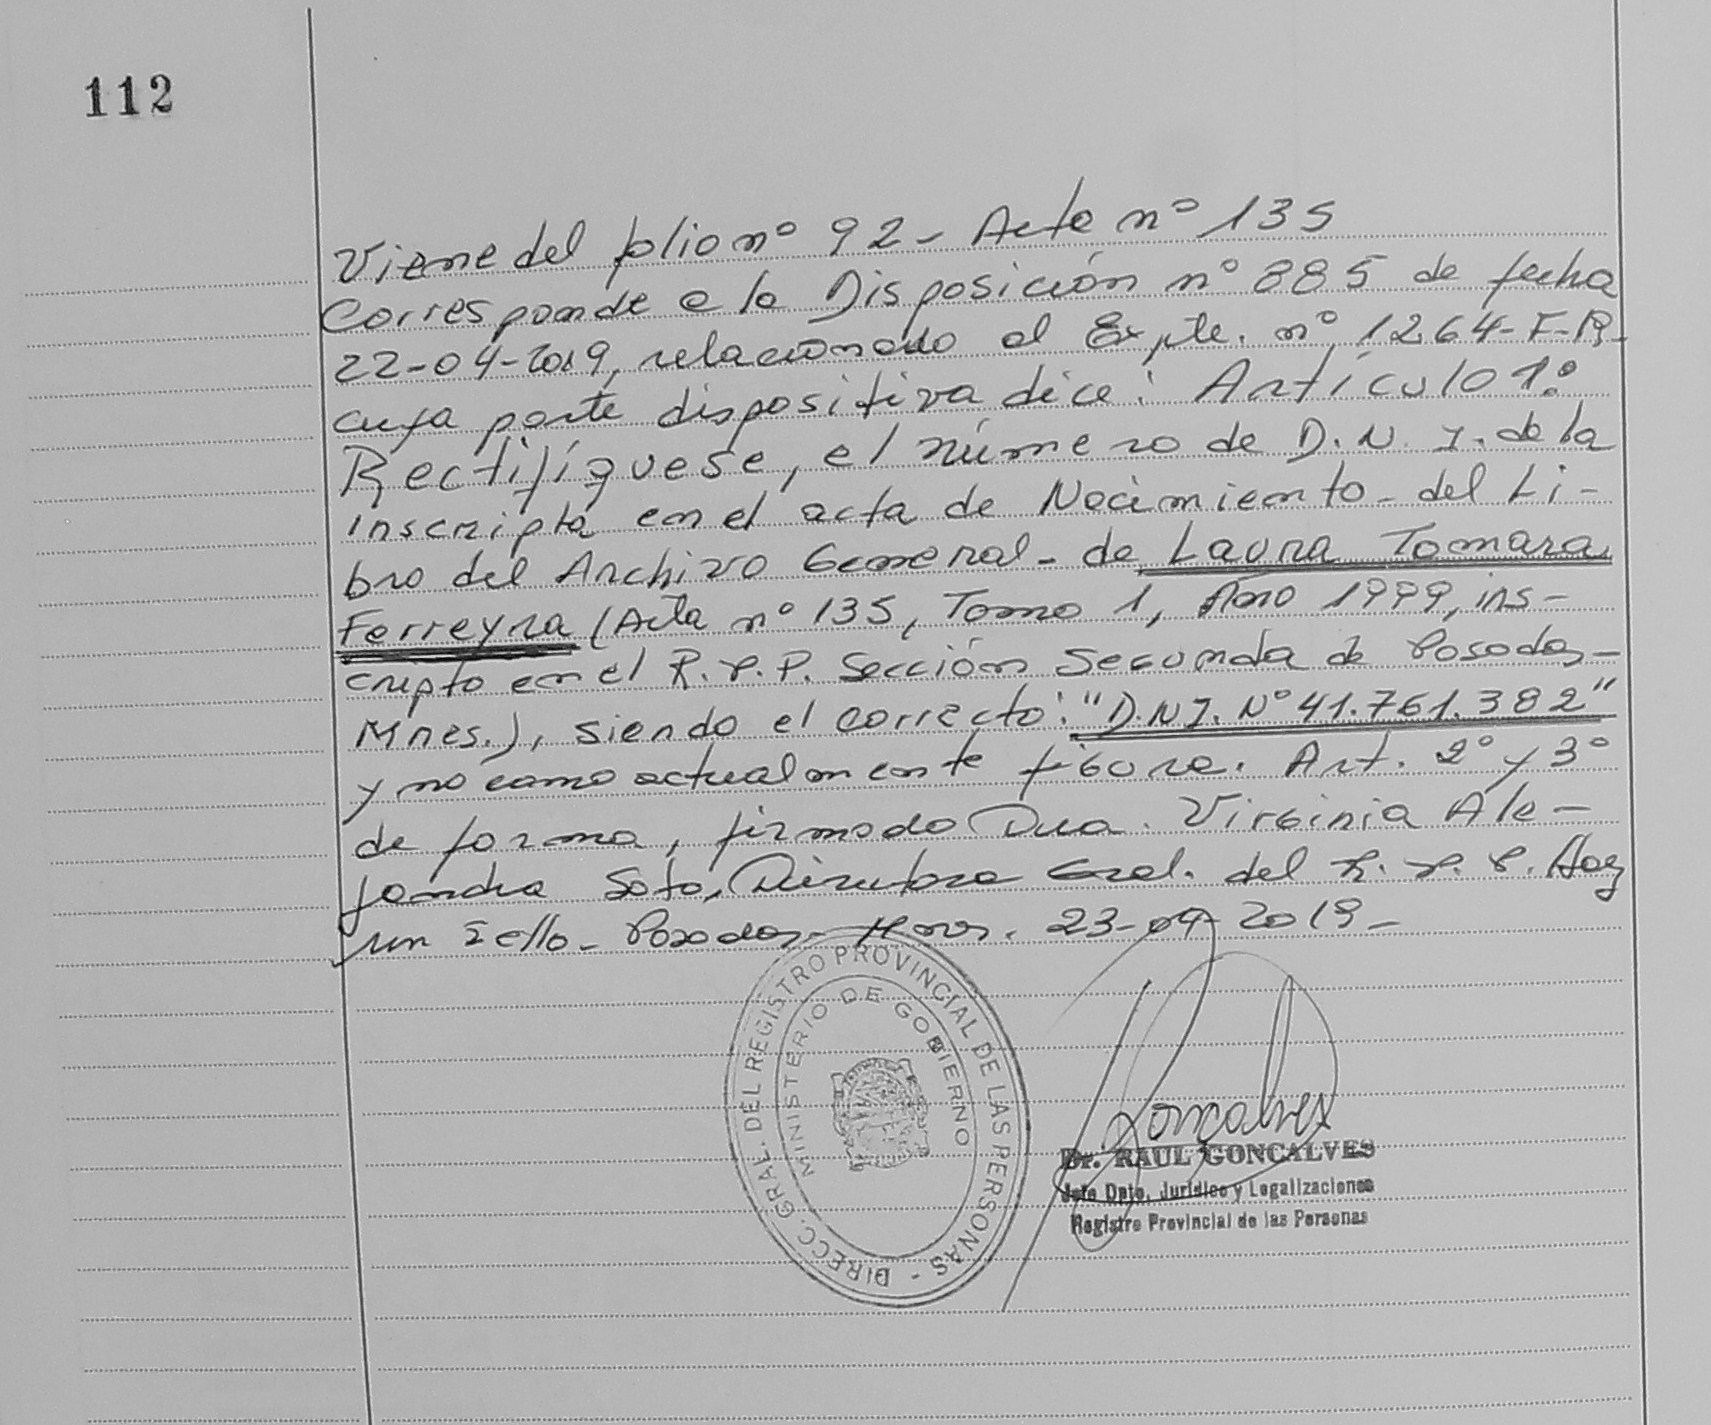 112
Viene del folio nº 92 - Acta nº 135
Corresponde a la Disposición nº 885 de fecha
22-04-2019, relacionado al Expte. nº 1264-F-R-
cuya parte dispositiva dice: Artículo 1º:
Rectifíquese, el número de D.N.I. de la
inscripta en el acta de Nacimiento - del Li-
bro del Archivo General - de Laura Tamara
Ferreyra (Acta nº 135, Tomo 1, Año 1999, ins-
cripto en el R.P.P. Sección Segunda de Posadas -
Mnes.), siendo el correcto: "D.N.I. Nº 41.761.382"
y no como actualmente figura. Art. 2º y 3º
de forma, firmado Dra. Virginia Ale-
jandra Soto, Directora Gral. del R.P.P. Hay
un sello - Posadas - Mnes. 23-04-2019 -
DIRECC. GRAL. DEL REGISTRO PROVINCIAL DE LAS PERSONAS -
MINISTERIO DE GOBIERNO
Goncalves
Dr. RAUL GONCALVES
Jefe Dpto. Jurídico y Legalizaciones
Registro Provincial de las Personas